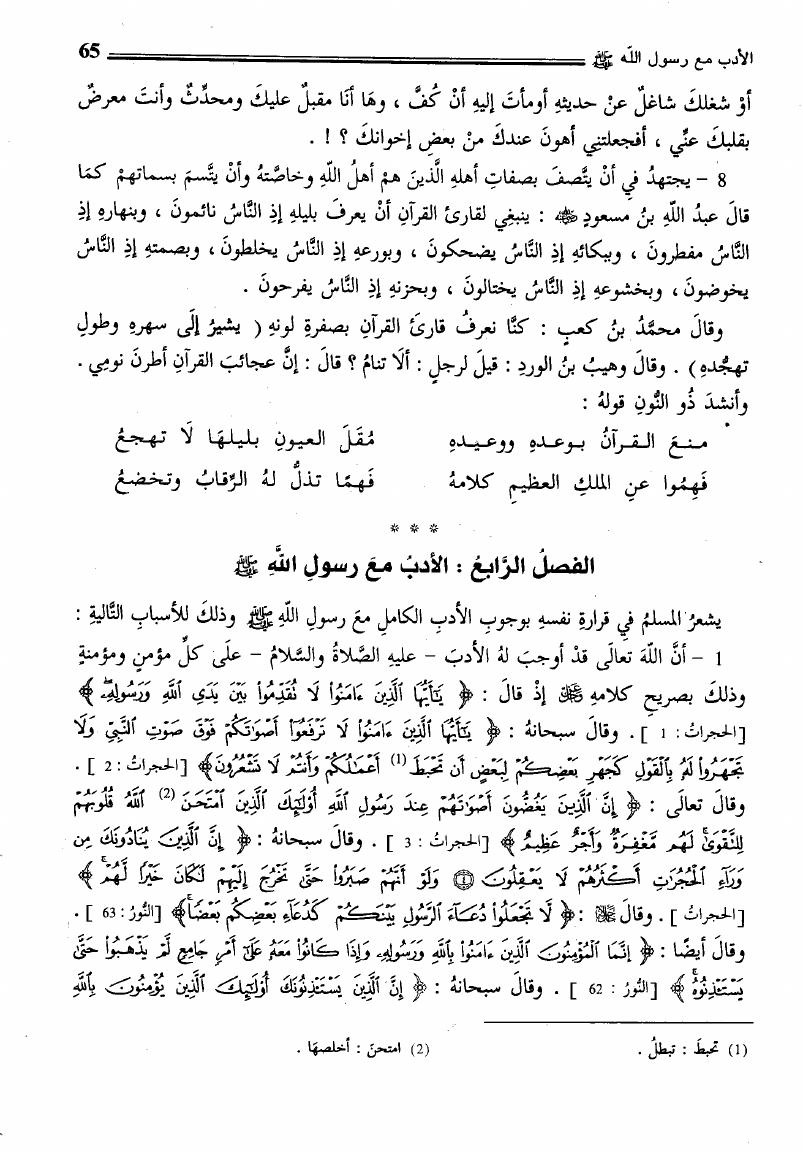 الأدب مع رسول الله ﷺ 65
أوْ شغلكَ شاغلٌ عنْ حديثهِ أومأتَ إليهِ أنْ كُفَّ ، وهَا أنَا مقبلٌ عليكَ ومحدِّثٌ وأنتَ معرضٌ
بقلبكَ عنِّي ، أفجعلتنِي أهونَ عندكَ منْ بعضِ إخوانكَ ؟ ! .
8 – يجتهدُ في أنْ يتَّصفَ بصفاتِ أهلهِ الَّذينَ همْ أهلُ اللهِ وخاصَّتهُ وأنْ يتَّسمَ بسماتهمْ كمَا
قالَ عبدُ اللهِ بنُ مسعودٍ ﷺ : ينبغِي لقارئِ القرآنِ أنْ يعرفَ بليلهِ إذِ النَّاسُ نائمونَ ، وبنهارهِ إذِ
النَّاسُ مفطرونَ ، وببكائهِ إذِ النَّاسُ يضحكونَ ، وبورعهِ إذِ النَّاسُ يخلطونَ ، وبصمتهِ إذِ النَّاسُ
يخوضونَ ، وبخشوعهِ إذِ النَّاسُ يختالونَ ، وبحزنهِ إذِ النَّاسُ يفرحونَ .
وقالَ محمَّدُ بنُ كعبٍ : كنَّا نعرفُ قارئَ القرآنِ بصفرةِ لونهِ ( يشيرُ إلَى سهرهِ وطولِ
تهجُّدهِ ) . وقالَ وهيبُ بنُ الوردِ : قيلَ لرجلٍ : ألَا تنامُ ؟ قالَ : إنَّ عجائبَ القرآنِ أطرنَ نومِي .
وأنشدَ ذُو النُّونِ قولهُ :
منـعَ القـرآنُ بـوعـدهِ ووعـيـدهِ مُقَلَ العـيونِ بـليلهَا لَا تهجعُ
فَهِمُوا عنِ الملكِ العظيمِ كلامهُ فَهمًا تذلُّ لهُ الرِّقابُ وتخضعُ
* * *
الفصلُ الرَّابعُ : الأدبُ معَ رسولِ اللهِ ﷺ
يشعرُ المسلمُ في قرارةِ نفسهِ بوجوبِ الأدبِ الكاملِ معَ رسولِ اللهِ ﷺ وذلكَ للأسبابِ التَّاليةِ :
1 – أنَّ اللهَ تعالَى قدْ أوجبَ لهُ الأدبَ – عليهِ الصَّلاةُ والسَّلامُ – علَى كلِّ مؤمنٍ ومؤمنةٍ
وذلكَ بصريحِ كلامهِ ﷻ إذْ قالَ : ﴿ يَٰٓأَيُّهَا ٱلَّذِينَ ءَامَنُوا۟ لَا تُقَدِّمُوا۟ بَيْنَ يَدَىِ ٱللَّهِ وَرَسُولِهِۦ ﴾
[الحجراتُ : 1 ] . وقالَ سبحانهُ : ﴿ يَٰٓأَيُّهَا ٱلَّذِينَ ءَامَنُوا۟ لَا تَرْفَعُوٓا۟ أَصْوَٰتَكُمْ فَوْقَ صَوْتِ ٱلنَّبِىِّ وَلَا
تَجْهَرُوا۟ لَهُۥ بِٱلْقَوْلِ كَجَهْرِ بَعْضِكُمْ لِبَعْضٍ أَن تَحْبَطَ (1) أَعْمَٰلُكُمْ وَأَنتُمْ لَا تَشْعُرُونَ ﴾ [الحجراتُ : 2 ] .
وقالَ تعالَى : ﴿ إِنَّ ٱلَّذِينَ يَغُضُّونَ أَصْوَٰتَهُمْ عِندَ رَسُولِ ٱللَّهِ أُو۟لَٰٓئِكَ ٱلَّذِينَ ٱمْتَحَنَ (2) ٱللَّهُ قُلُوبَهُمْ
لِلتَّقْوَىٰ ۚ لَهُم مَّغْفِرَةٌ وَأَجْرٌ عَظِيمٌ ﴾ [الحجراتُ : 3 ] . وقالَ سبحانهُ : ﴿ إِنَّ ٱلَّذِينَ يُنَادُونَكَ مِن
وَرَآءِ ٱلْحُجُرَٰتِ أَكْثَرُهُمْ لَا يَعْقِلُونَ ۝٤ وَلَوْ أَنَّهُمْ صَبَرُوا۟ حَتَّىٰ تَخْرُجَ إِلَيْهِمْ لَكَانَ خَيْرًا لَّهُمْ ۚ ﴾
[الحجراتُ ] . وقالَ ﷻ : ﴿ لَّا تَجْعَلُوا۟ دُعَآءَ ٱلرَّسُولِ بَيْنَكُمْ كَدُعَآءِ بَعْضِكُم بَعْضًا ۚ ﴾ [النُّورُ : 63 ] .
وقالَ أيضًا : ﴿ إِنَّمَا ٱلْمُؤْمِنُونَ ٱلَّذِينَ ءَامَنُوا۟ بِٱللَّهِ وَرَسُولِهِۦ وَإِذَا كَانُوا۟ مَعَهُۥ عَلَىٰٓ أَمْرٍ جَامِعٍ لَّمْ يَذْهَبُوا۟ حَتَّىٰ
يَسْتَـْٔذِنُوهُ ۚ ﴾ [النُّورُ : 62 ] . وقالَ سبحانهُ : ﴿ إِنَّ ٱلَّذِينَ يَسْتَـْٔذِنُونَكَ أُو۟لَٰٓئِكَ ٱلَّذِينَ يُؤْمِنُونَ بِٱللَّهِ
(1) تحبطَ : تبطلُ . (2) امتحنَ : أخلصهَا .